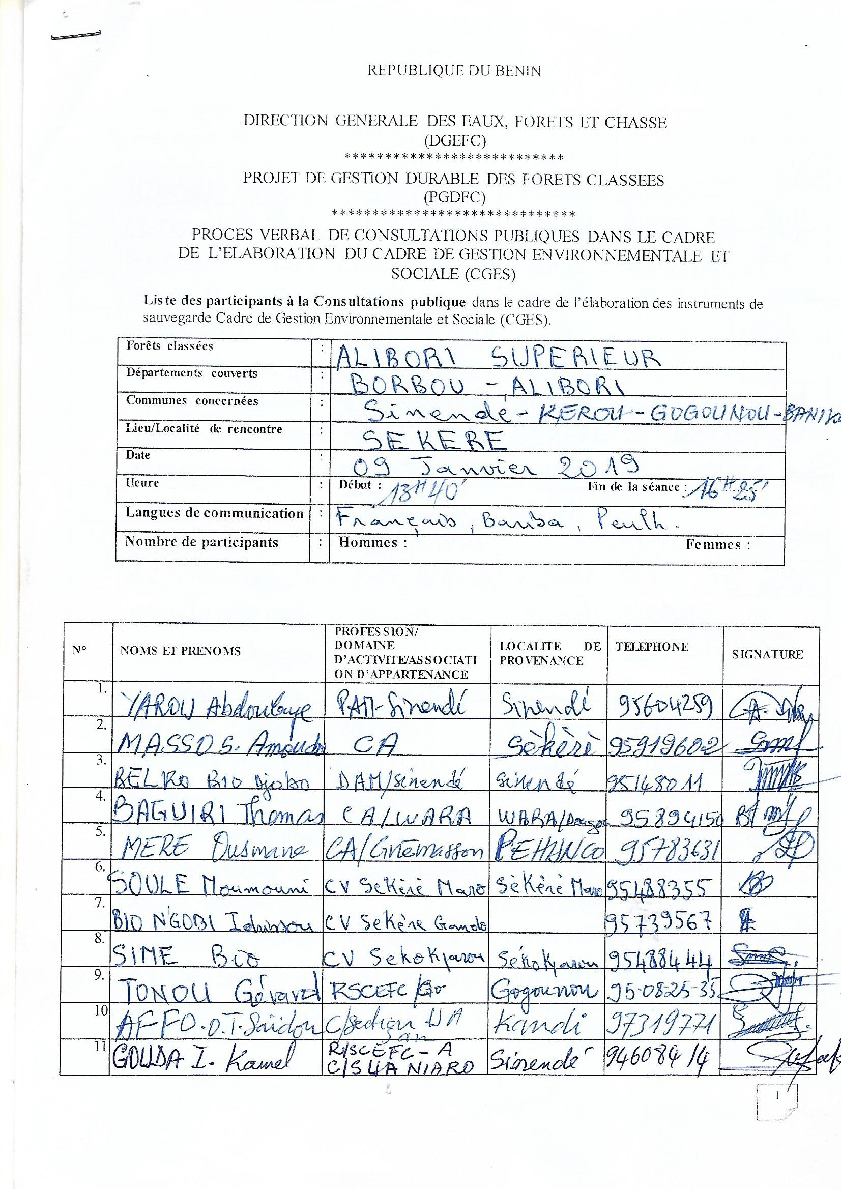 REPUBLIQUE DU BENIN
DIRECTION GENERALE DES EAUX, FORETS ET CHASSE
(DGEFC)
***************************
PROJET DE GESTION DURABLE DES FORETS CLASSEES
(PGDFC)
******************************
PROCES VERBAL DE CONSULTATIONS PUBLIQUES DANS LE CADRE
DE L'ELABORATION DU CADRE DE GESTION ENVIRONNEMENTALE ET
SOCIALE (CGES)
Liste des participants à la Consultations publique dans le cadre de l'élaboration des instruments de
sauvegarde Cadre de Gestion Environnementale et Sociale (CGES).
Forêts classées : ALIBORI SUPERIEUR
Départements couverts : BORGOU - ALIBORI
Communes concernées : Sinende - KEROU - GOGOUNOU -
Lieu/Localité de rencontre : SEKERE
Date : 09 Janvier 2019
Heure : Début : 13H40' Fin de la séance : 16H25'
Langues de communication : Français, Bariba, Peulh.
Nombre de participants : Hommes : Femmes :
N° NOMS ET PRENOMS PROFESSION/ DOMAINE D'ACTIVITE/ASSOCIATI ON D'APPARTENANCE LOCALITE DE PROVENANCE TELEPHONE SIGNATURE
1. YAROU Abdoulaye Sinendé 95604259
2. MASSO S. CA Sèkèrè 95919602
3. BELKO Bio Djobo DAM/Sinendé Sinendé 95148011
4. BAGUIRI Thomas CA/WARA WARA/ 95894150
5. MERE Ousmane CA/Guémasson PEHUNCO 95783631
6. SOULE Moumouni CV Sekèrè Maro Sèkèrè Maro 95488355
7. BIO N'GOBI Idrissou CV Sekère Gando 95739567
8. SIME Bio CV Sekokparou Sékokparou 95488444
9. TONOU RSCEFC/Go Gogounou 95-08-25-35
10 AFFO.O.T. Saïdou Kandi 97319771
11 GOUDA I. Kamel R/SCEFC-A Sinendé 94608414
1